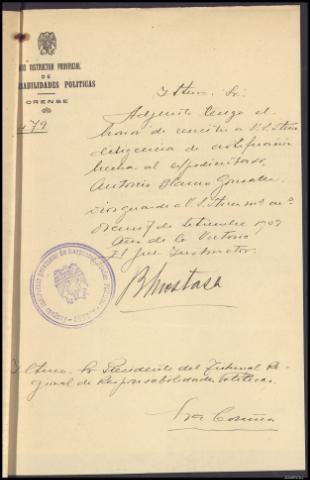 DO INSTRUCTOR PROVINCIAL
DE
SABILIDADES POLITICAS
ORENSE
479
Iltmo. Sr.
Adjunto tengo el
honor de remitir a V.S. Iltma
diligencia de notificación
hecha al expedientado,
Antonio Blanco Gonzalez
Dios guarde a V.S. Iltma ms. as.
Orense 7 de Setiembre 1939
Año de la Victoria
El Juez Instructor.
Iltmo. Sr. Presidente del Tribunal Re-
gional de Responsabilidades Politicas.
La Coruña